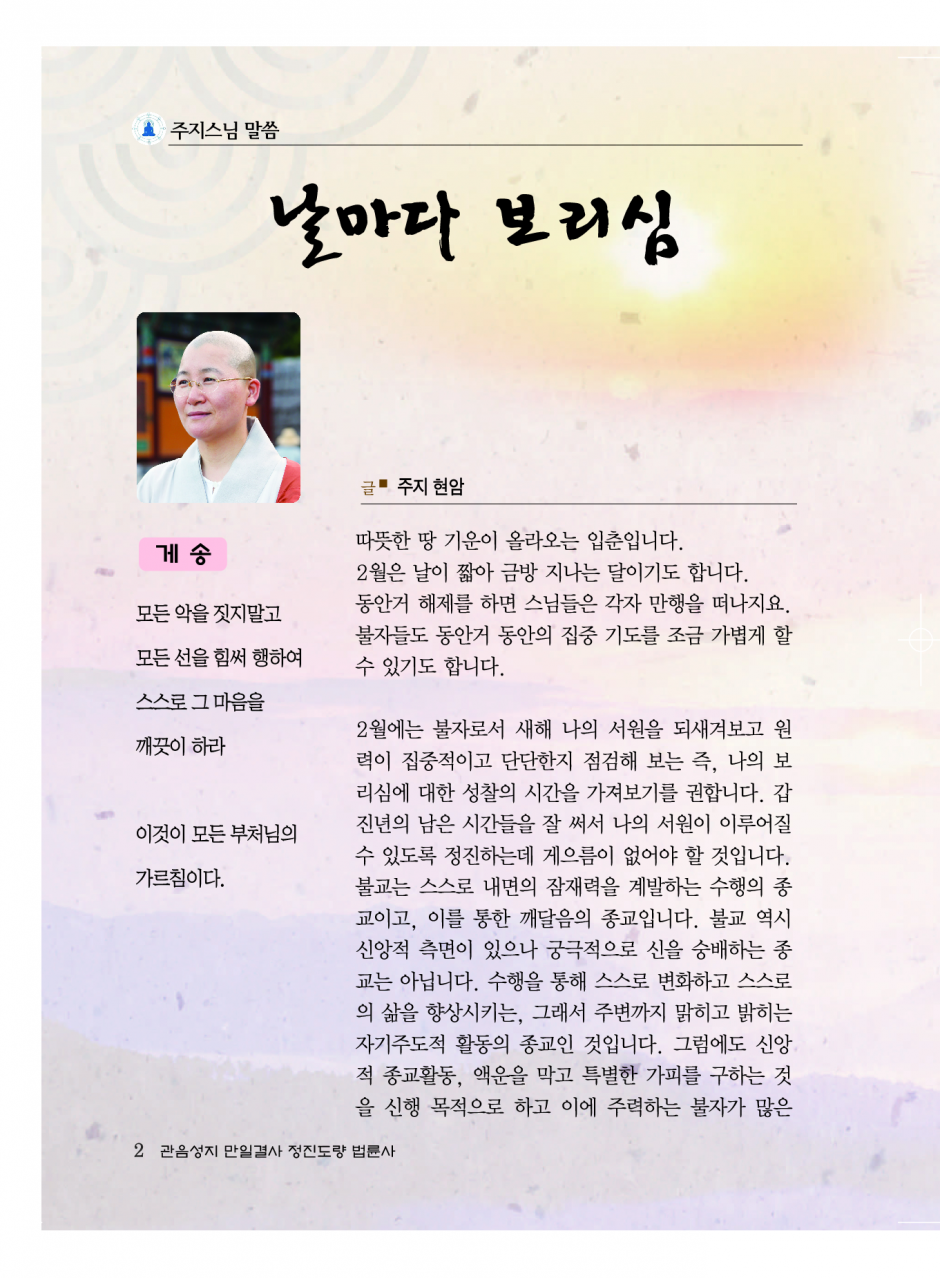 주지스님 말씀
날마다 보리심
글■ 주지 현암
게 송
모든 악을 짓지말고
모든 선을 힘써 행하여
스스로 그 마음을
깨끗이 하라
이것이 모든 부처님의
가르침이다.
따뜻한 땅 기운이 올라오는 입춘입니다.
2월은 날이 짧아 금방 지나는 달이기도 합니다.
동안거 해제를 하면 스님들은 각자 만행을 떠나지요.
불자들도 동안거 동안의 집중 기도를 조금 가볍게 할
수 있기도 합니다.
2월에는 불자로서 새해 나의 서원을 되새겨보고 원
력이 집중적이고 단단한지 점검해 보는 즉, 나의 보
리심에 대한 성찰의 시간을 가져보기를 권합니다. 갑
진년의 남은 시간들을 잘 써서 나의 서원이 이루어질
수 있도록 정진하는데 게으름이 없어야 할 것입니다.
불교는 스스로 내면의 잠재력을 계발하는 수행의 종
교이고, 이를 통한 깨달음의 종교입니다. 불교 역시
신앙적 측면이 있으나 궁극적으로 신을 숭배하는 종
교는 아닙니다. 수행을 통해 스스로 변화하고 스스로
의 삶을 향상시키는, 그래서 주변까지 맑히고 밝히는
자기주도적 활동의 종교인 것입니다. 그럼에도 신앙
적 종교활동, 액운을 막고 특별한 가피를 구하는 것
을 신행 목적으로 하고 이에 주력하는 불자가 많은
2 관음성지 만일결사 정진도량 법륜사